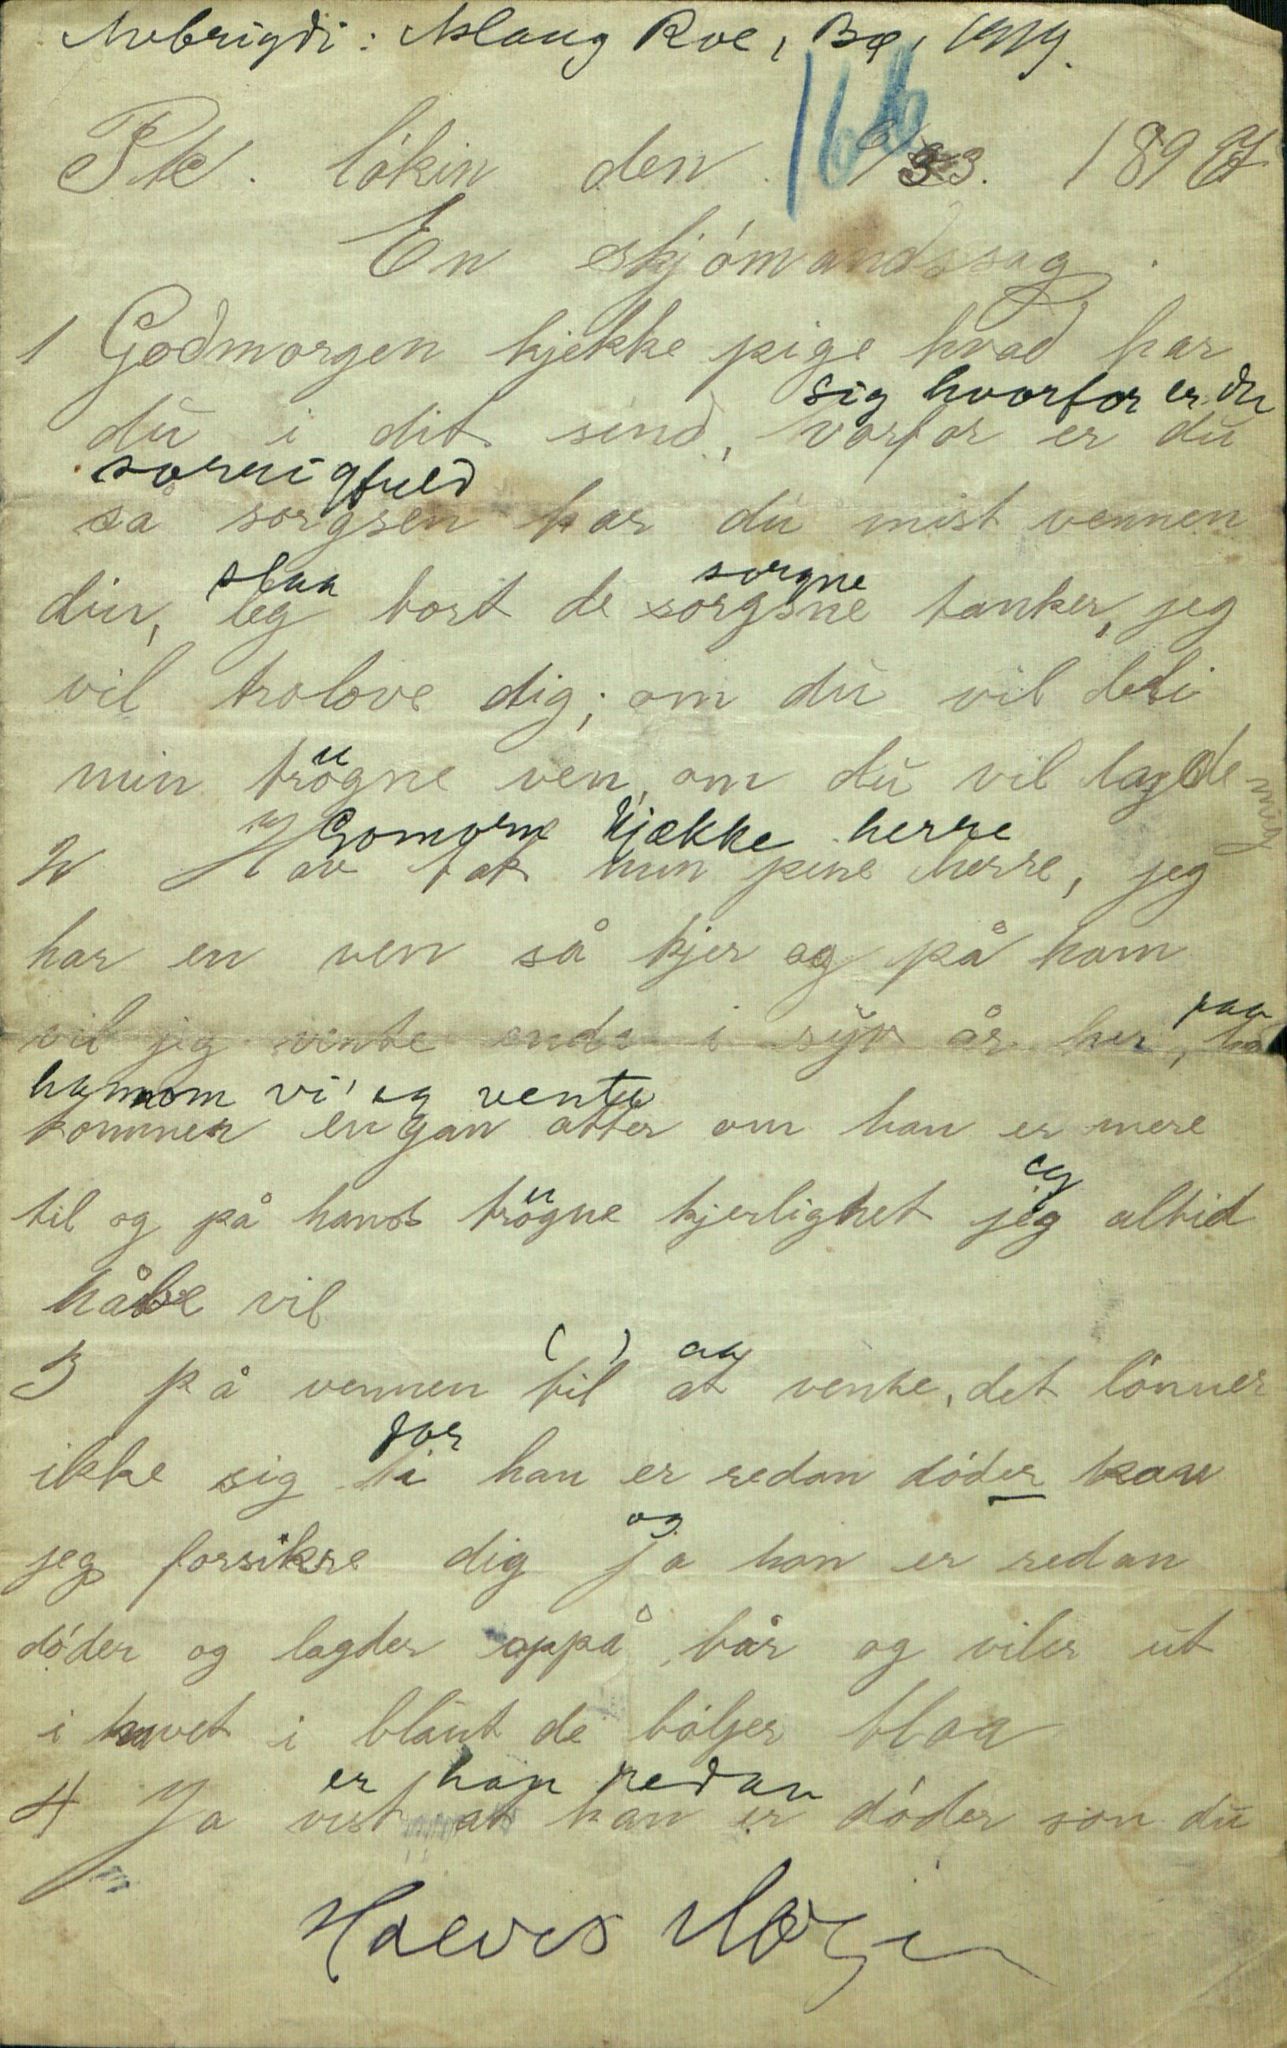 Avbrigdi: Aslaug Roe, Bø, 1919.
166
Pk. lökin den 9/3 3. 1897
En skjómandssag.
1 Godmorgen kjekke pige hvad har
sig hvorfor er du
du i dit sind, vorfor er du
sorrigfuld
sa sorgsen har du mist vennen
slaa sorgne
din, leg bort de sorgsne tanker, jeg
vil trolove dig; om du vil bli
u
min trögne ven, om du vil tage de mig
Gomorn kjække herre
2 Hav tak min pene herre, jeg
har en ven så kjer og på ham
vil jeg vente enda i syv år her,
paa
hannom vi' eg venta
kommer engan atter om han er mere
u eg
til og på hans trögne kjerlighet jeg altid
håbe vil
( ) aa
3 på vennen til at vente, det lönner
for
ikke sig ti han er redan döder kan
og
jeg forsikre dig ja han er redan
döder og lagder oppå bår og viler ut
i havet i blant de böljer blaa
er han redan
4 Ja vist at han er döder son du